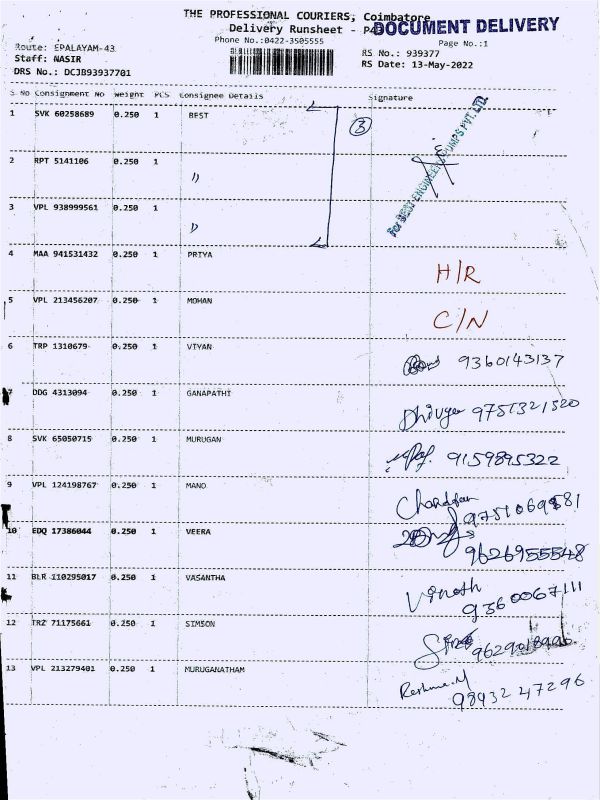 THE PROFESSIONAL COURIERS, Coimbatore
Delivery Runsheet - DOCUMENT DELIVERY
Phone No.:0422-3505555
Page No.:1
Route: EPALAYAM-43
Staff: NASIR
DRS No.: DCJB93937701
RS No.: 939377
RS Date: 13-May-2022
S No Consignment No Weight PCS Consignee Details Signature
1 SVK 60258689 0.250 1 BEST
3
For BEST ENGINEERS PUMPS PVT. LTD.
2 RPT 5141106 0.250 1 "
3 VPL 938999561 0.250 1 "
4 MAA 941531432 0.250 1 PRIYA H/R
5 VPL 213456207 0.250 1 MOHAN C/N
6 TRP 1310679 0.250 1 VIYAN 9360143137
7 DDG 4313094 0.250 1 GANAPATHI Dhivya 9751321520
8 SVK 65050715 0.250 1 MURUGAN 9159895322
9 VPL 124198767 0.250 1 MANO
10 EDQ 17386044 0.250 1 VEERA 9626955548
11 BLR 110295017 0.250 1 VASANTHA Vinoth 9360067111
12 TRZ 71175661 0.250 1 SIMSON
13 VPL 213279401 0.250 1 MURUGANATHAM Reshma.M 9843247296